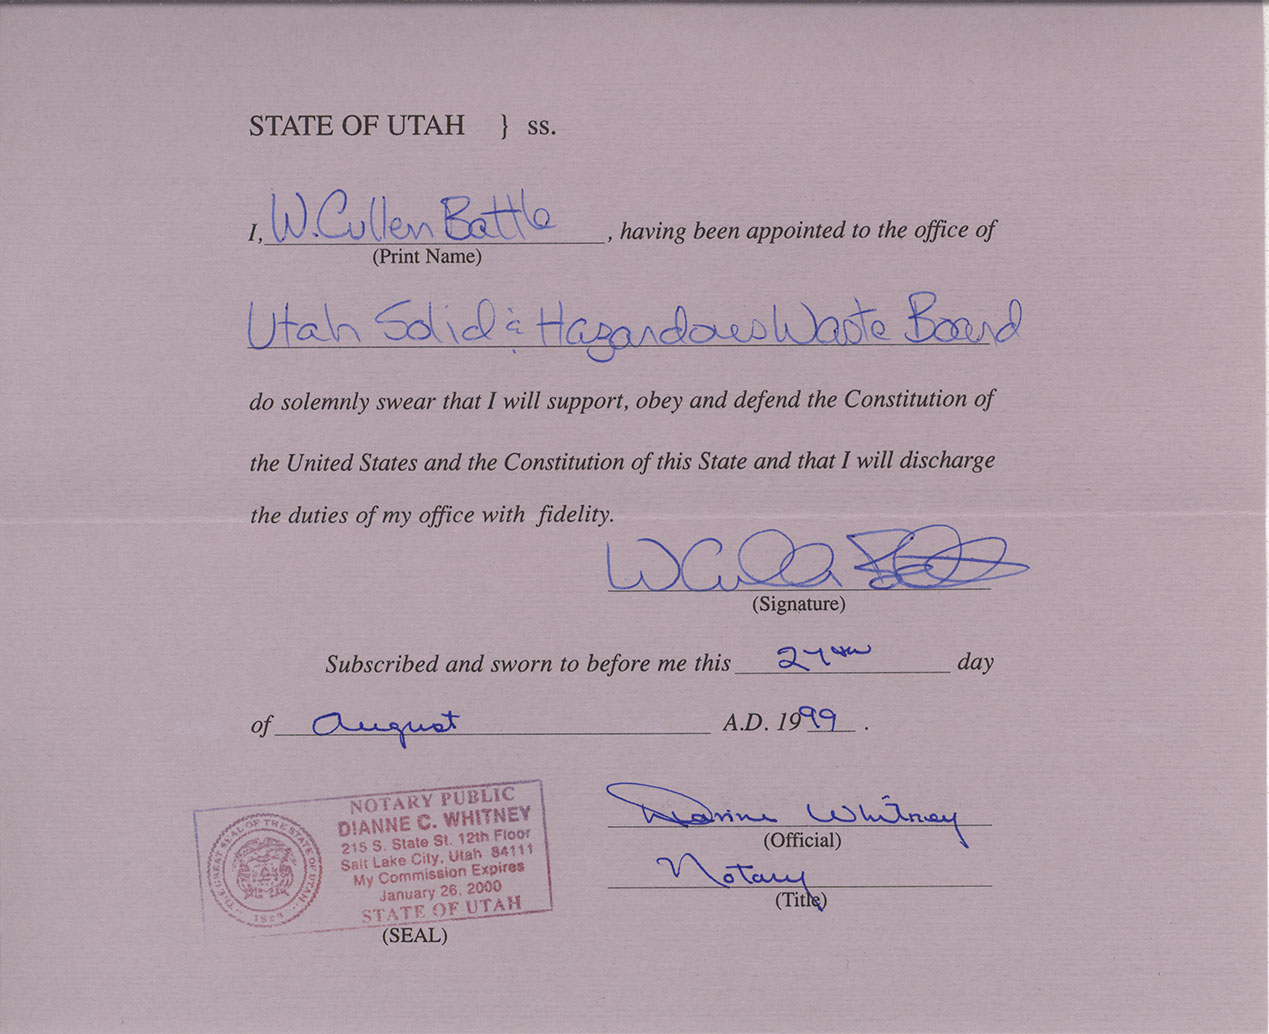 STATE OF UTAH } ss.
I, W. Cullen Battle, having been appointed to the office of
(Print Name)
Utah Solid & Hazardous Waste Board
do solemnly swear that I will support, obey and defend the Constitution of
the United States and the Constitution of this State and that I will discharge
the duties of my office with fidelity.
W Cullen Battle
(Signature)
Subscribed and sworn to before me this 27th day
of August A.D. 1999.
Dianne Whitney
(Official)
Notary
(Title)
THE GREAT SEAL OF THE STATE OF UTAH
1896
NOTARY PUBLIC
DIANNE C. WHITNEY
215 S. State St. 12th Floor
Salt Lake City, Utah 84111
My Commission Expires
January 26, 2000
STATE OF UTAH
(SEAL)